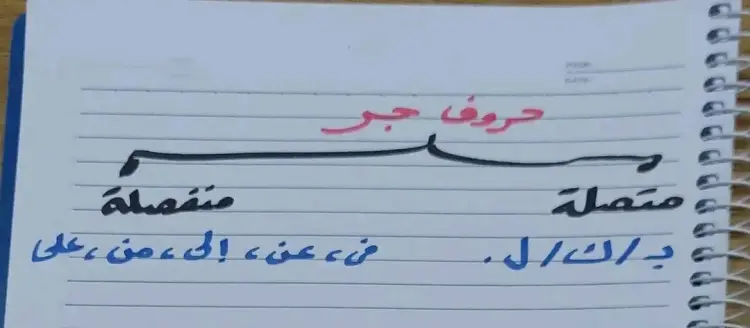 حروف جر
متصلة منفصلة
بـ / كـ / لـ . في ، عن ، إلى ، من ، على